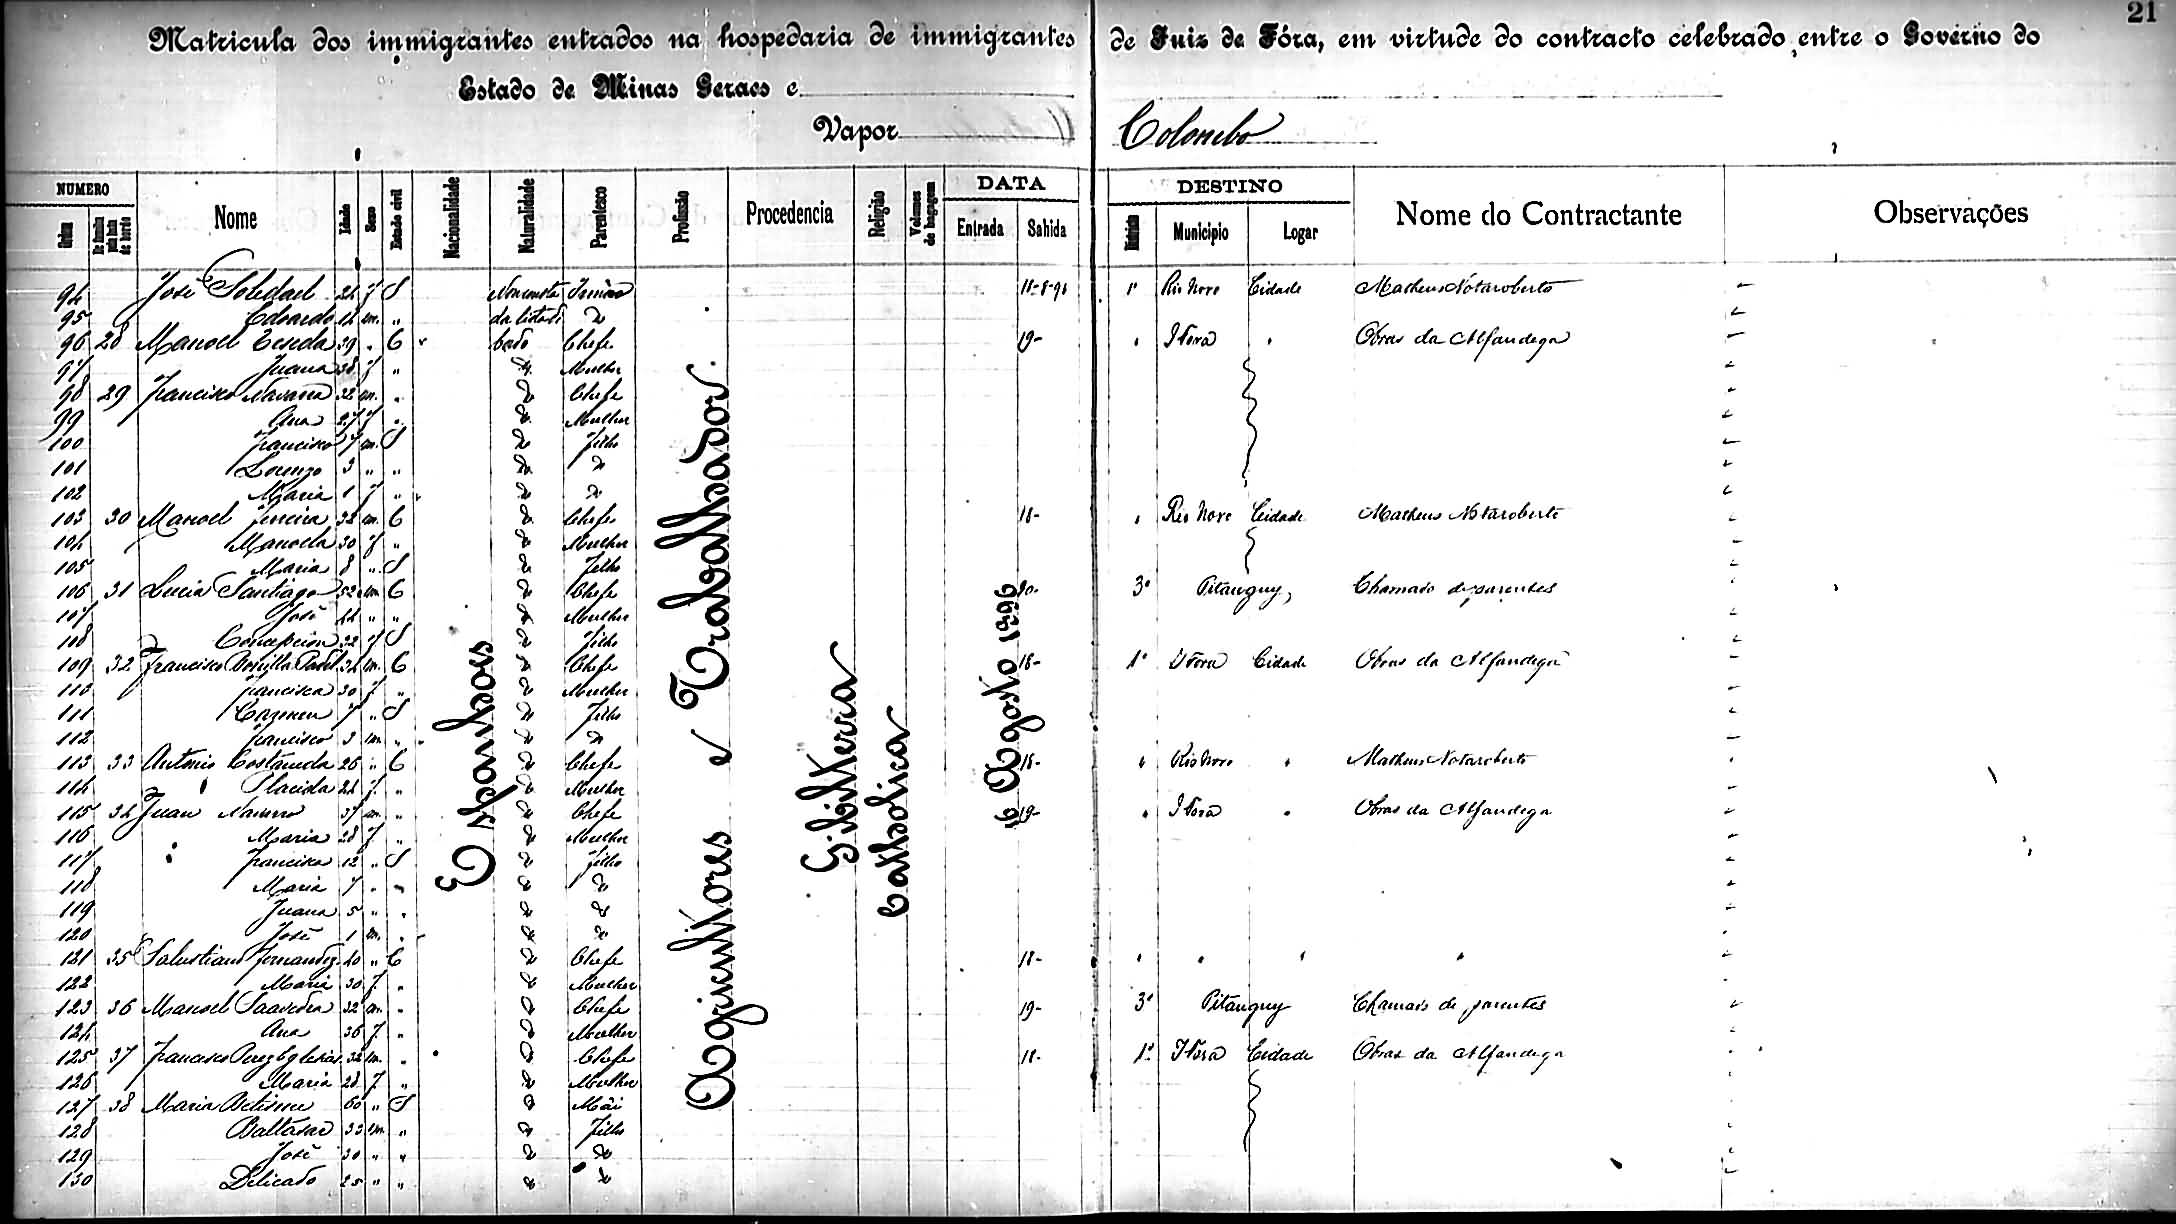 21
Matricula dos immigrantes entrados na hospedaria de immigrantes de Juiz de Fóra, em virtude do contracto celebrado entre o Governo do
Estado de Minas Geraes e
Vapor Colombo
NUMERO DATA DESTINO
Ordem Nome Idade Sexo Estado civil Nacionalidade Naturalidade Parentesco Profissão Procedencia Religião Volumes de bagagem Entrada Sahida Districto Municipio Logar Nome do Contractante Observações
Espanhoes
Agricultores e Trabalhador
Gibilterra
Catholica
16 Agosto 1896
94 José Soledad 24 f S Irmão 18-8-96 1º Rio Novo Cidade Matheus Notaroberto
95 Eduardo 14 m. " da lista de "
96 28 Manoel 39 " C bordo Chefe 19- " J Fora " Obras da Alfandega
97 Juana 38 f " " Mulher
98 29 Francisco Navarro 32 m. " " Chefe
99 Ana 27 f " " Mulher
100 Francisco 7 m. S " Filho
101 Lorenzo 3 " " " "
102 Maria 1 f " " "
103 30 Manoel 32 m. C " Chefe 18- " Rio Novo Cidade Matheus Notaroberto
104 Manoela 30 f " " Mulher
105 Maria 8 " S " Filho
106 31 Lucia Santiago 52 m C " Chefe 20- 3º Pitanguy, Chamado de parentes
107 José 44 " " " Mulher
108 Concepcion 22 f S " Filho
109 32 Francisco Bonilla 34 m. C " Chefe 18- 1º J Fora Cidade Obras da Alfandega
110 Francisca 30 f " " Mulher
111 Carmen 7 " S " Filho
112 Francisco 3 m. " " "
113 33 Antonio Castañeda 26 " C " Chefe 18- " Rio Novo " Matheus Notaroberto
114 Placida 24 f. " " Mulher
115 34 Juan Navarro 37 m. " " Chefe 19- " J Fora " Obras da Alfandega
116 Maria 28 f " " Mulher
117 Francisca 12 " S " Filho
118 Maria 7 " " " "
119 Juana 5 " " " "
120 José 1 m. " " "
121 35 Salustiano Fernandez 40 " C " Chefe 18- " " " "
122 Maria 30 f. " " Mulher
123 36 Manoel Saavedra 32 m. " " Chefe 19- 3º Pitanguy Chamado de parentes
124 Ana 36 f. " " Mulher
125 37 Francisco Perez Iglesias 32 m. " " Chefe 18- 1º J Fora Cidade Obras da Alfandega
126 Maria 28 f. " " Mulher
127 38 Maria 60 " S " Mãi
128 Baltasar 33 m. " " Filho
129 José 30 " " " "
130 Delicado 25 " " " "